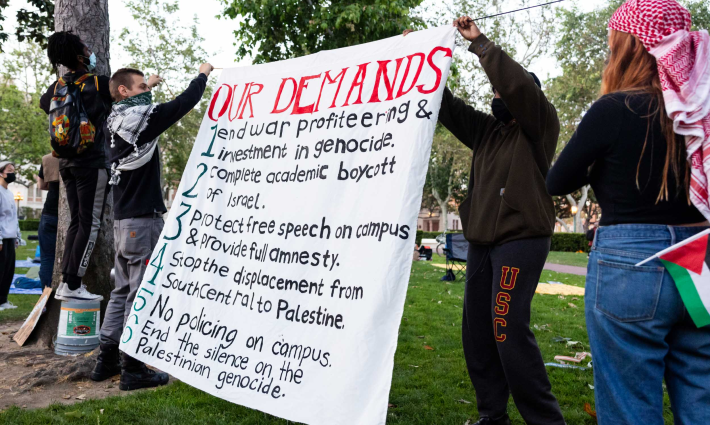 OUR DEMANDS
1 end war profiteering &
investment in genocide.
2 complete academic boycott
of Israel.
3 protect free speech on campus
& provide full amnesty.
4 Stop the displacement from
South Central to Palestine.
5 No policing on campus.
6 End the silence on the
Palestinian genocide.
USC